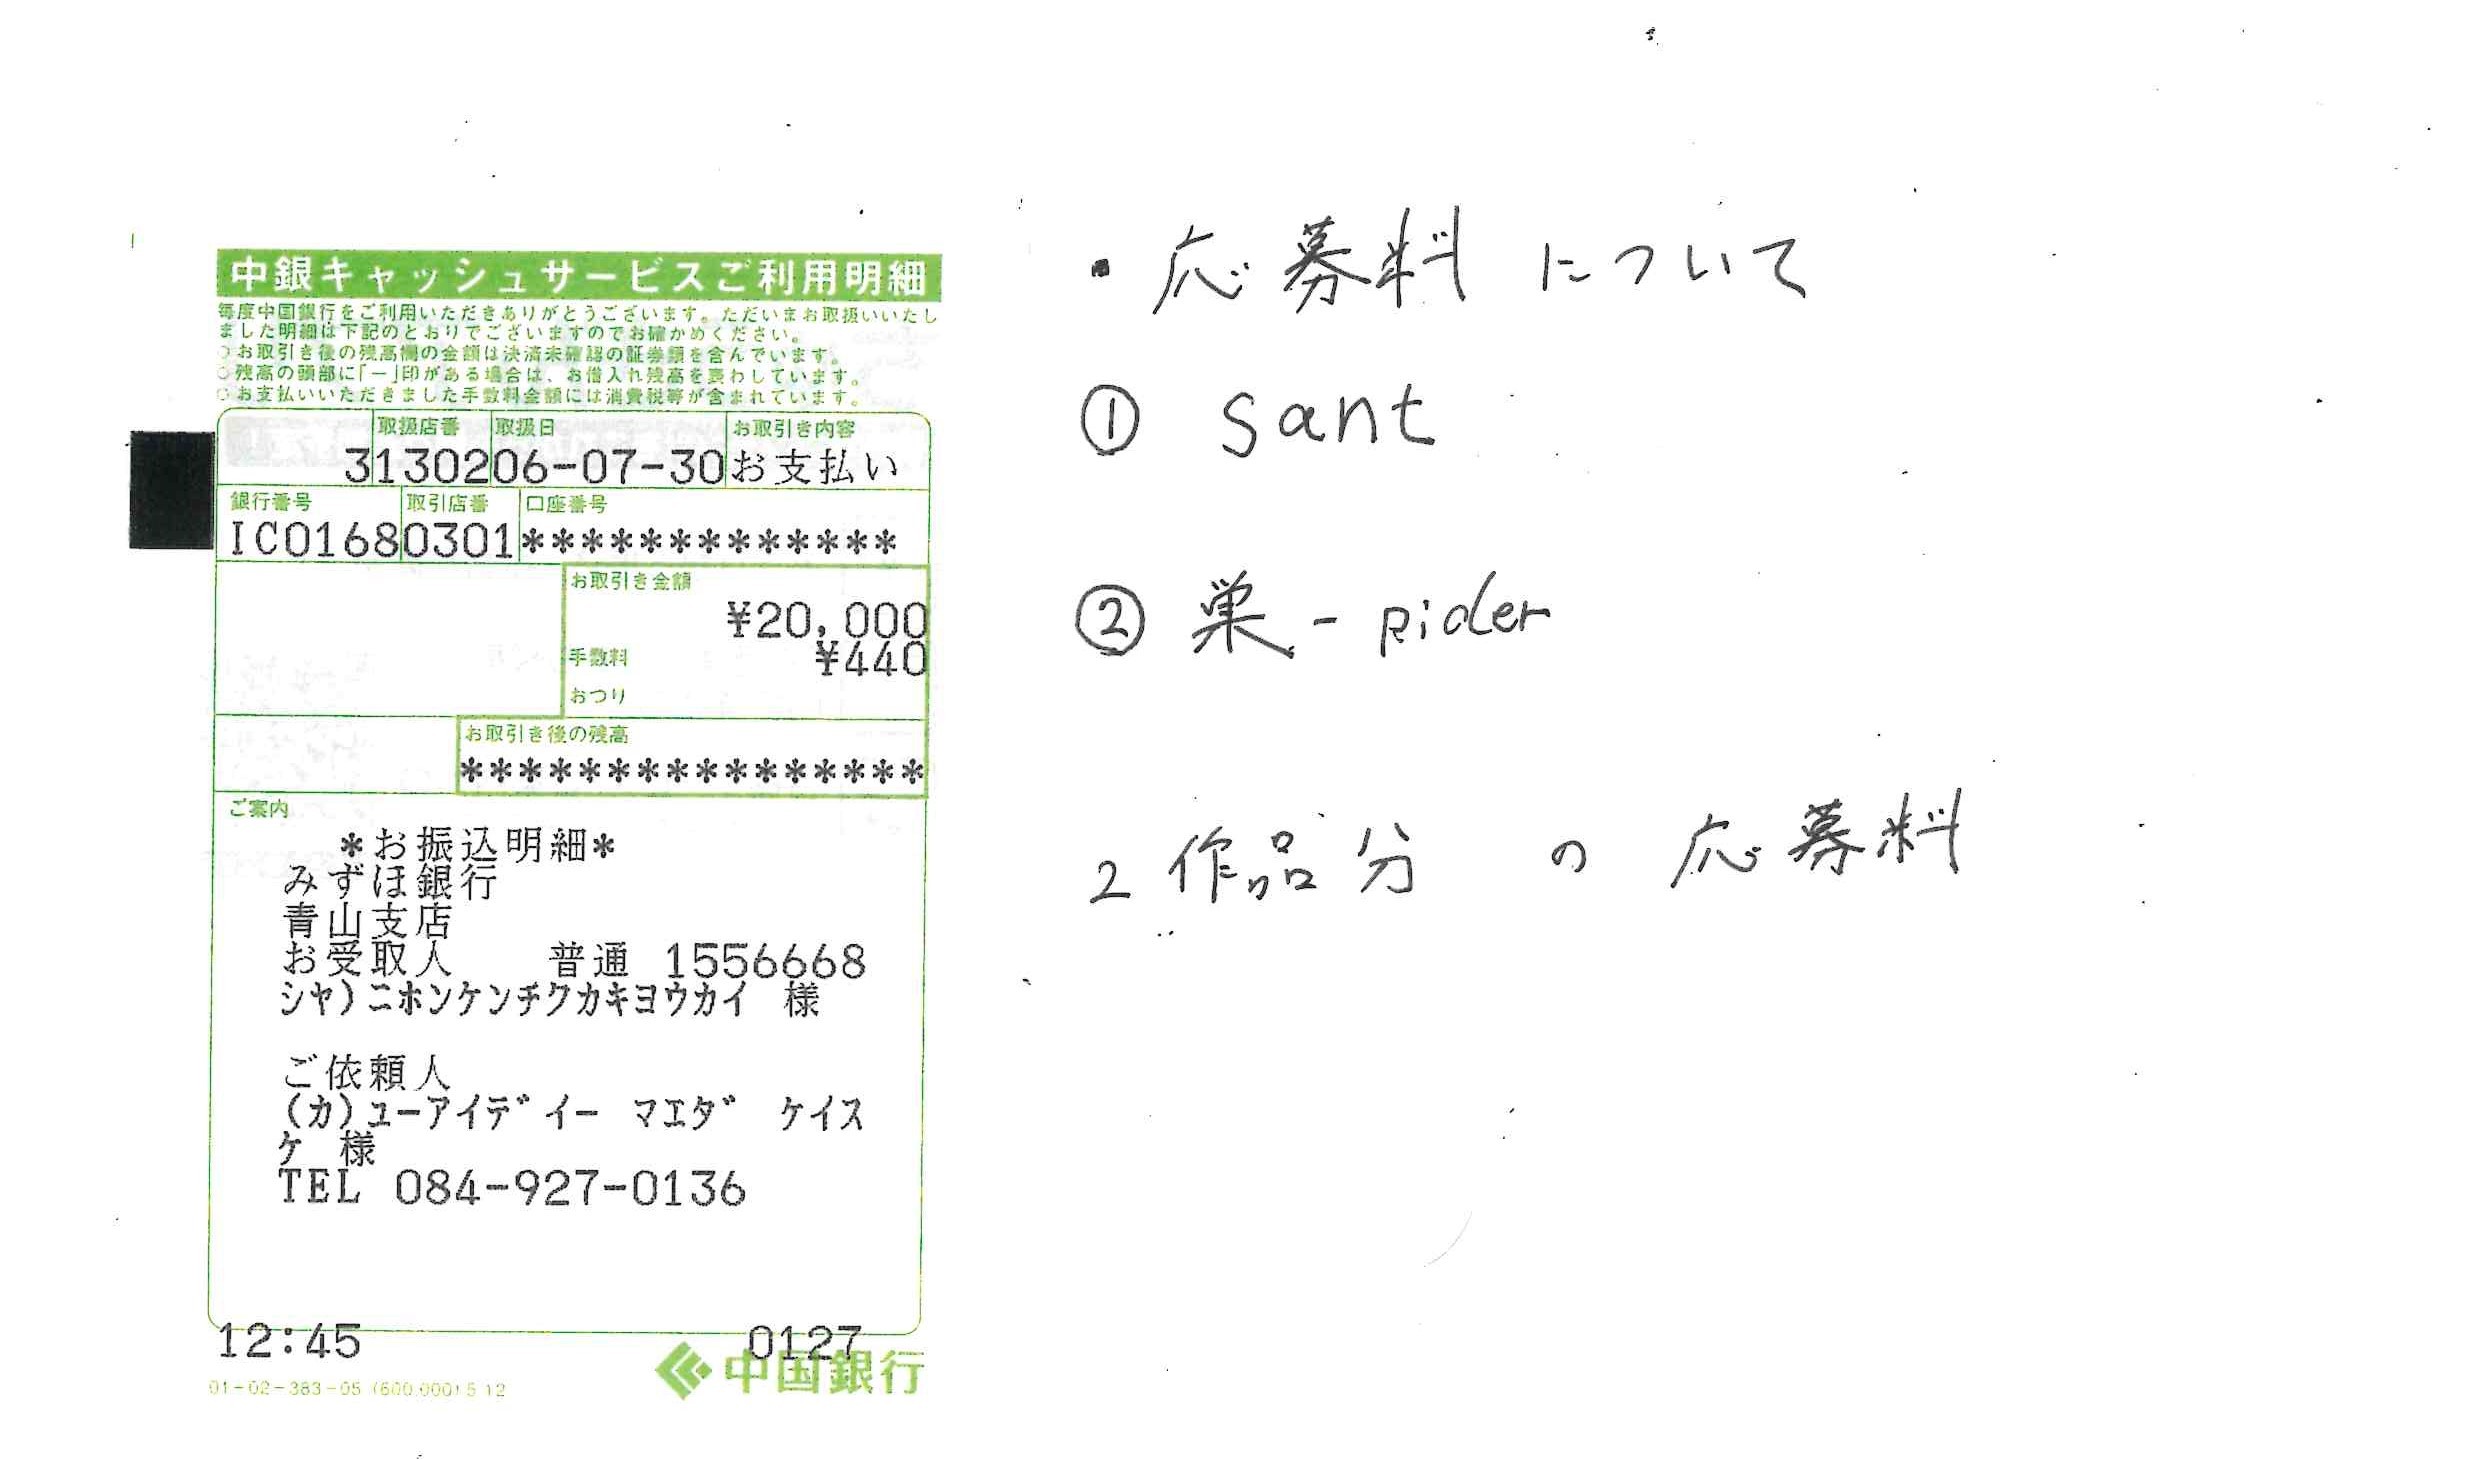 中銀キャッシュサービスご利用明細
毎度中国銀行をご利用いただきありがとうございます。ただいまお取扱いいたし
ました明細は下記のとおりでございますのでお確かめください。
○お取引き後の残高欄の金額は決済未確認の証券類を含んでいます。
○残高の頭部に「－」印がある場合は、お借入れ残高を表わしています。
○お支払いいただきました手数料金額には消費税等が含まれています。
取扱店番 取扱日 お取引き内容
3130206-07-30お支払い
銀行番号 取引店番 口座番号
IC01680301*************
お取引き金額
¥20,000
手数料 ¥440
おつり
お取引き後の残高
****************
ご案内
*お振込明細*
みずほ銀行
青山支店
お受取人 普通 1556668
シヤ)ニホンケンチクカキヨウカイ 様
ご依頼人
(カ)ユーアイデイー マエダ ケイス
ケ 様
TEL 084-927-0136
12:45 0127
中国銀行
01-02-383-05 (600,000) 5.12
・応募料 について
① sant
② 巣-pider
2作品分 の 応募料